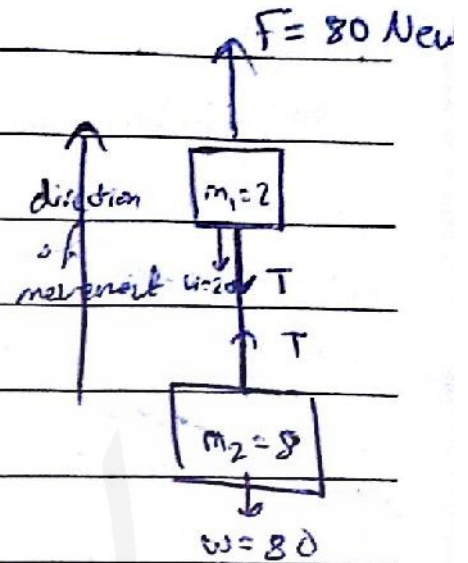 F = 80 New
m₁=2
direction
of
movement
w=20
T
T
m₂=8
w=80